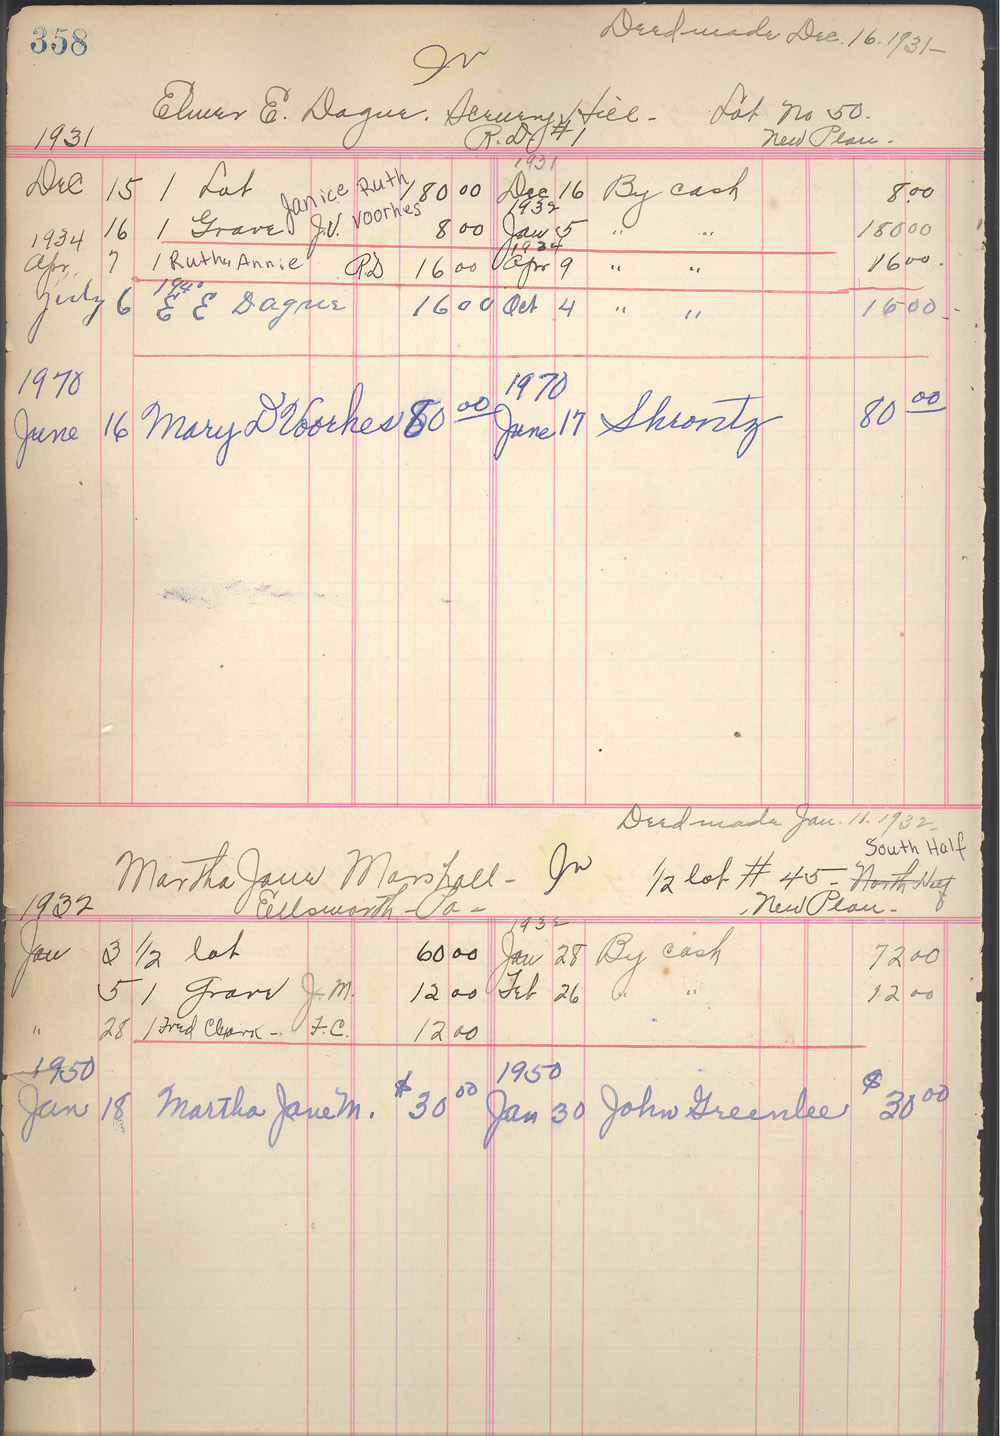 358
Deed made Dec. 16. 1931-
In
Elmer E. Dague. Scenery Hill - Lot No 50.
1931 R.D. #1 New Plan.
1931
Dec 15 1 Lot 180 00 Dec 16 By cash 8.00
Janice Ruth
Voorhes
1932
16 1 Grave J.V. 8 00 Jan 5 " " 180 00
1934 1934
Apr. 7 1 Ruth Annie R.D 16 00 Apr 9 " " 16 00.
1940
July 6 E E Dague 16 00 Oct 4 " " 16 00
1970 1970
June 16 Mary D Voorhes 80 00 June 17 Shrontz 80 00
Deed made Jan. 11. 1932-
South Half
Martha Jane Marshall - In 1/2 lot # 45 - North Half
1932 Ellsworth - Pa - New Plan -
1932
Jan 3 1/2 lot 60 00 Jan 28 By cash 72 00
5 1 Grave J. M. 12 00 Feb 26 " " 12 00
" 28 1 Fred Clark - F.C. 12 00
1950 1950
Jan 18 Martha Jane M. $30 00 Jan 30 John Greenlee $30 00